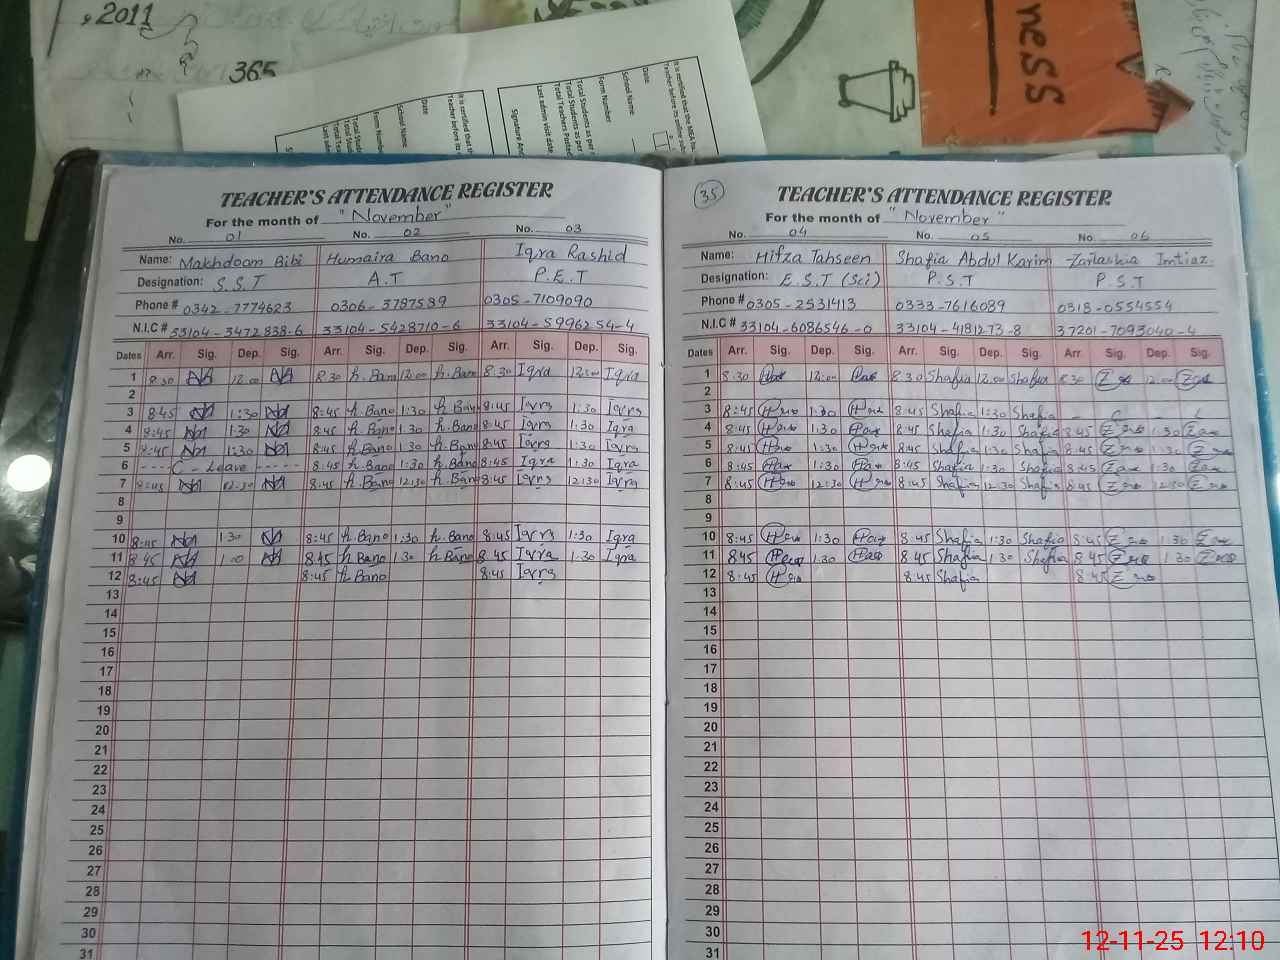 2011
365
ness
It is certified that the
Teacher before its
Date
School Name
Form Number
Total Students as per
Total Teachers Posted
Last admin visit date
Signature And
TEACHER'S ATTENDANCE REGISTER
For the month of "November"
No. 01 No. 02 No. 03
Name: Makhdoom Bibi Humaira Bano Iqra Rashid
Designation: S.S.T A.T P.E.T
Phone # 0342-7774623 0306-3787589 0305-7109090
N.I.C # 33104-3472838-6 33104-5428710-6 33104-5996254-4
Dates Arr. Sig. Dep. Sig. Arr. Sig. Dep. Sig. Arr. Sig. Dep. Sig.
1 8:30 12:00 8:30 h.Bano 12:00 h.Bano 8:30 Iqra 12:00 Iqra
2
3 8:45 1:30 8:45 h.Bano 1:30 h.Bano 8:45 Iqra 1:30 Iqra
4 8:45 1:30 8:45 h.Bano 1:30 h.Bano 8:45 Iqra 1:30 Iqra
5 8:45 1:30 8:45 h.Bano 1:30 h.Bano 8:45 Iqra 1:30 Iqra
6 ---- C - Leave ----- 8:45 h.Bano 1:30 h.Bano 8:45 Iqra 1:30 Iqra
7 8:45 12:30 8:45 h.Bano 12:30 h.Bano 8:45 Iqra 12:30 Iqra
8
9
10 8:45 1:30 8:45 h.Bano 1:30 h.Bano 8:45 Iqra 1:30 Iqra
11 8:45 1:00 8:45 h.Bano 1:30 h.Bano 8:45 Iqra 1:30 Iqra
12 8:45 8:45 h.Bano 8:45 Iqra
13
14
15
16
17
18
19
20
21
22
23
24
25
26
27
28
29
30
31
35
TEACHER'S ATTENDANCE REGISTER
For the month of "November"
No. 04 No. 05 No. 06
Name: Hifza Tahseen Shafia Abdul Karim Zarlashia Imtiaz.
Designation: E.S.T (Sci) P.S.T P.S.T
Phone # 0305-2531413 0333-7616089 0318-0554554
N.I.C # 33104-6086546-0 33104-4181273-8 37201-7093040-4
Dates Arr. Sig. Dep. Sig. Arr. Sig. Dep. Sig. Arr. Sig. Dep. Sig.
1 8:30 12:00 8:30 Shafia 12:00 Shafia 8:30 12:00
2
3 8:45 1:30 8:45 Shafia 1:30 Shafia - C - L
4 8:45 1:30 8:45 Shafia 1:30 Shafia 8:45 1:30
5 8:45 1:30 8:45 Shafia 1:30 Shafia 8:45 1:30
6 8:45 1:30 8:45 Shafia 1:30 Shafia 8:45 1:30
7 8:45 12:30 8:45 Shafia 12:30 Shafia 8:45 12:30
8
9
10 8:45 1:30 8:45 Shafia 1:30 Shafia 8:45 1:30
11 8:45 1:30 8:45 Shafia 1:30 Shafia 8:45 1:30
12 8:45 8:45 Shafia 8:45
13
14
15
16
17
18
19
20
21
22
23
24
25
26
27
28
29
30
31
12-11-25 12:10